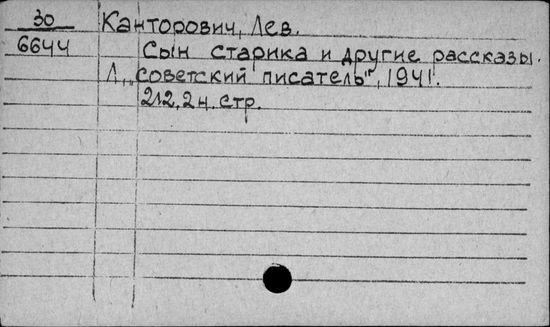 30 Канторович, Лев.
6644 Сын старика и другие рассказы.
Л., „Советский писатель", 1941.
212, 2 н. стр.